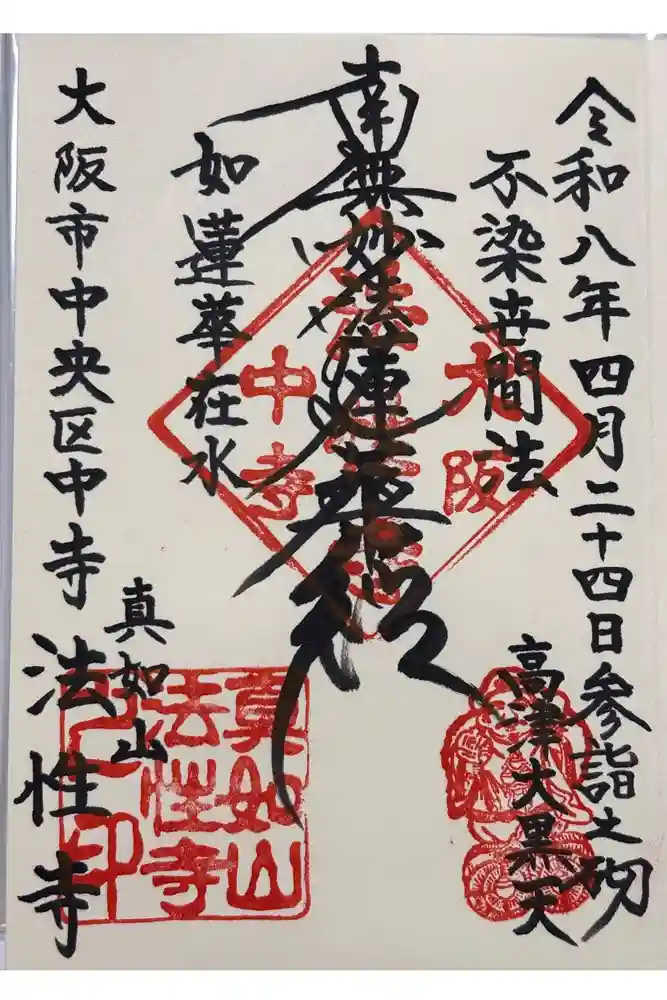 令和八年四月二十四日参詣之砌
不染世間法
高津大黒天
南無妙法蓮華経
大阪
中寺
如蓮華在水
大阪市中央区中寺
真如山
法性寺
真如山
法性寺
之印